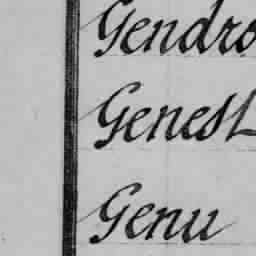 Gendro
Genest
Genu